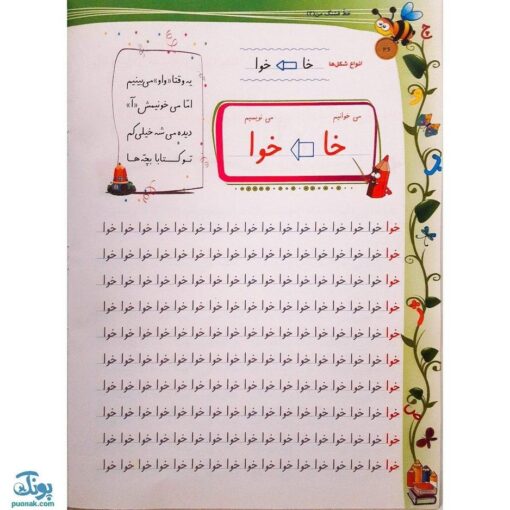 خط قشنگ من
انواع شکل‌ها
خا ⇦ خوا
می خوانیم می نویسیم
خا ⇦ خوا
یه وقتا «واو» می‌بینیم
امّا می خونیمش «آ»
دیده می شه خیلی کم
تو کتابا بچّه ها
خوا خوا خوا خوا خوا خوا خوا خوا خوا خوا خوا خوا خوا خوا خوا خوا
خوا خوا خوا خوا خوا خوا خوا خوا خوا خوا خوا خوا خوا خوا خوا خوا
خوا خوا خوا خوا خوا خوا خوا خوا خوا خوا خوا خوا خوا خوا خوا خوا
خوا خوا خوا خوا خوا خوا خوا خوا خوا خوا خوا خوا خوا خوا خوا خوا
خوا خوا خوا خوا خوا خوا خوا خوا خوا خوا خوا خوا خوا خوا خوا خوا
خوا خوا خوا خوا خوا خوا خوا خوا خوا خوا خوا خوا خوا خوا خوا خوا
خوا خوا خوا خوا خوا خوا خوا خوا خوا خوا خوا خوا خوا خوا خوا خوا
خوا خوا خوا خوا خوا خوا خوا خوا خوا خوا خوا خوا خوا خوا خوا خوا
خوا خوا خوا خوا خوا خوا خوا خوا خوا خوا خوا خوا خوا خوا خوا خوا
خوا خوا خوا خوا خوا خوا خوا خوا خوا خوا خوا خوا خوا خوا خوا خوا
پونک
puonak.com